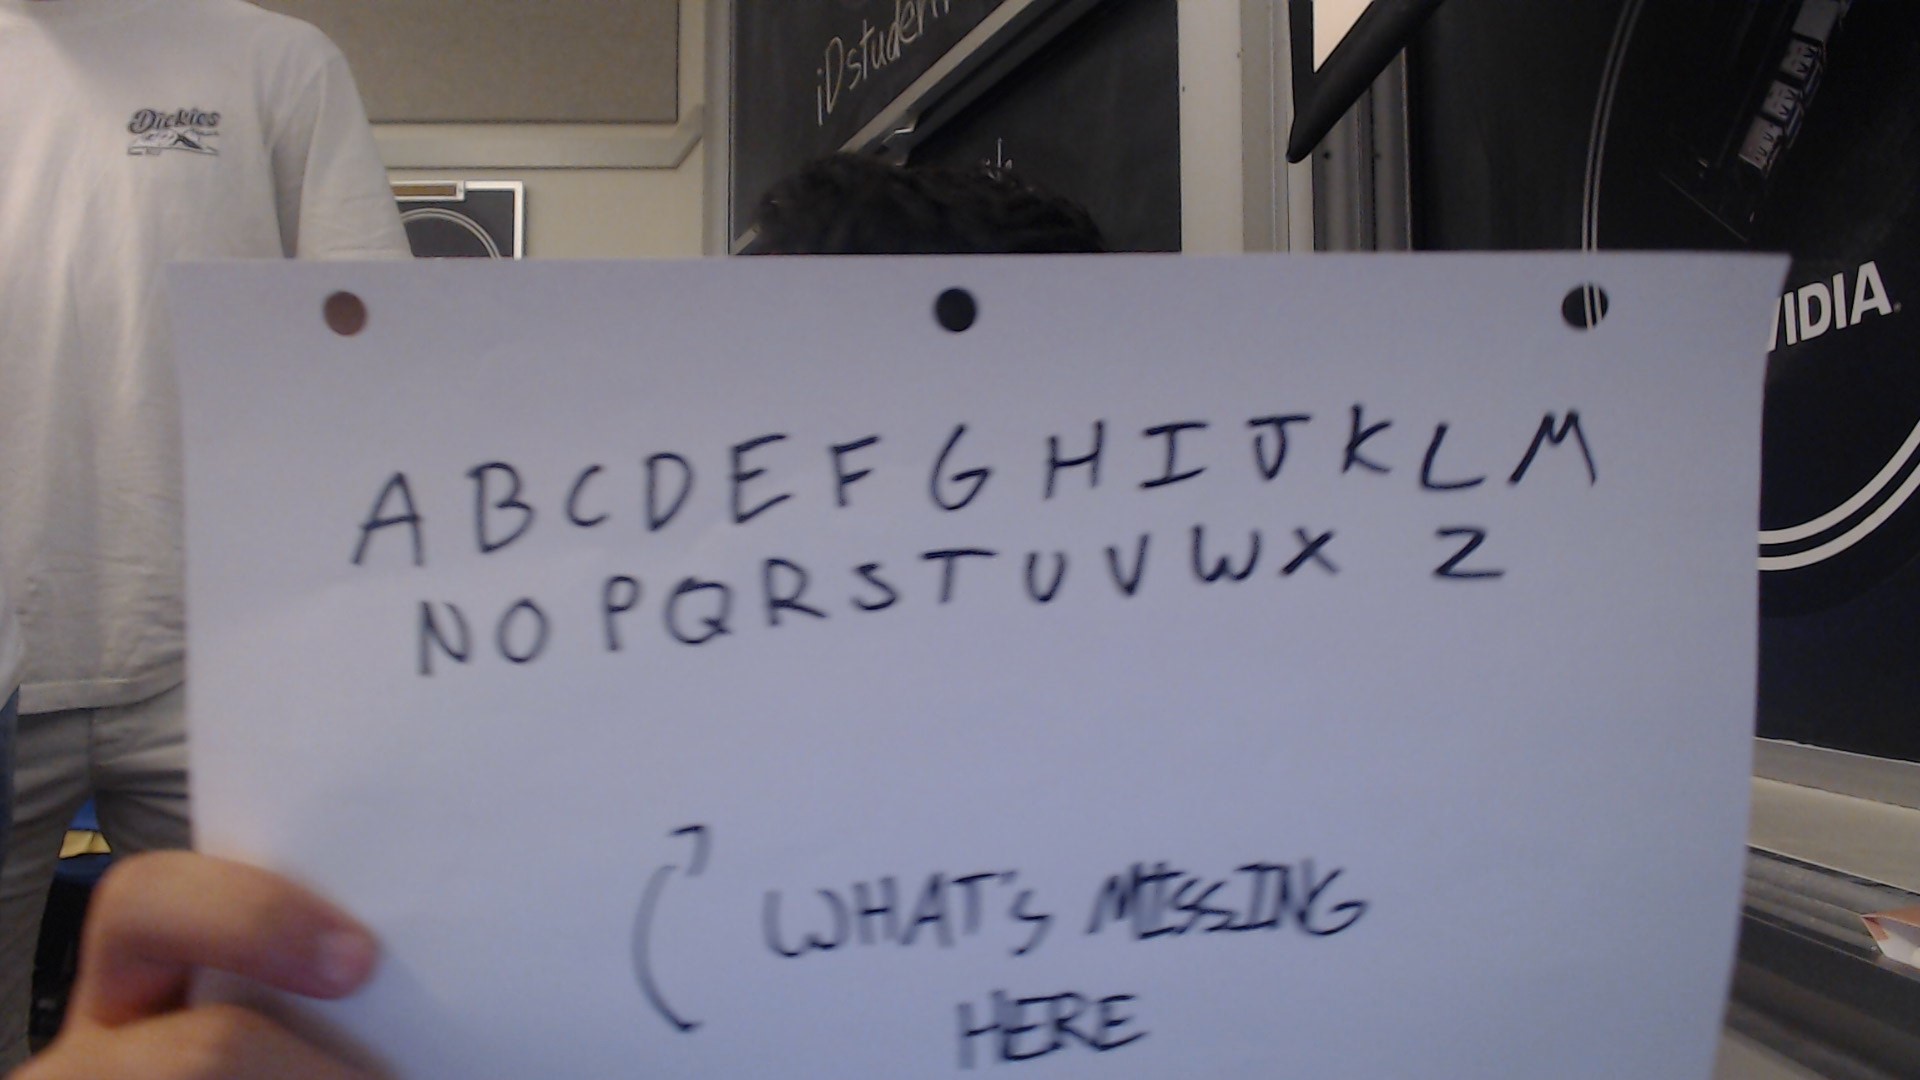 Dickies
iDstuden
VIDIA
A B C D E F G H I J K L M
N O P Q R S T U V W X Z
WHAT'S MISSING
HERE